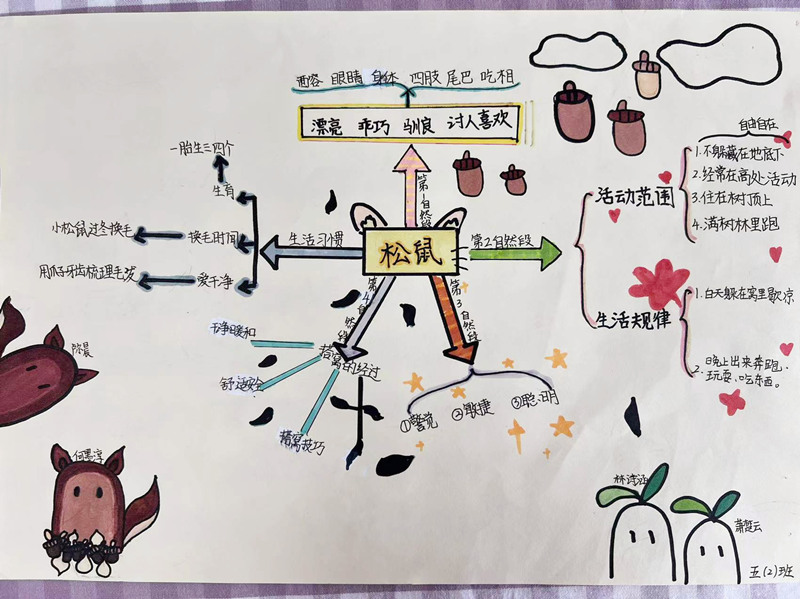 面容 眼睛 身体 四肢 尾巴 吃相
漂亮 乖巧 驯良 讨人喜欢
第1自然段
松鼠
第2自然段
活动范围
自由自在
1.不躲藏在地底下
2.经常在高处活动
3.住在树顶上
4.满树林里跑
生活规律
1.白天躲在窝里歇凉
2.晚上出来奔跑.
玩耍.吃东西。
第3自然段
①警觉 ②敏捷 ③聪明
第4自然段
搭窝的经过
干净暖和
舒适安全
搭窝技巧
生活习惯
生育
一胎生三四个
换毛时间
小松鼠过冬换毛
爱干净
用爪子牙齿梳理毛发
陈晨
五(2)班